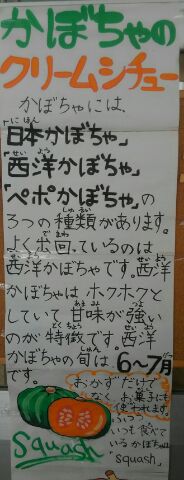 かぼちゃの
クリームシチュー
かぼちゃには、
「日本かぼちゃ」
にほん
「西洋かぼちゃ」
せいよう
「ペポかぼちゃ」の
3つの種類があります。
しゅるい
よく出回っているのは
でまわ
西洋かぼちゃです。西洋
せいよう
かぼちゃは、ホクホクと
していて甘味が強い
あまみ つよ
のが特徴です。西洋
とくちょう せいよう
かぼちゃの旬は6〜7月
しゅん がつ
です。
おかずだけで
なく、お菓子にも
使われます。
いつも食べて
いるかぼちゃは
「squash」
Squash